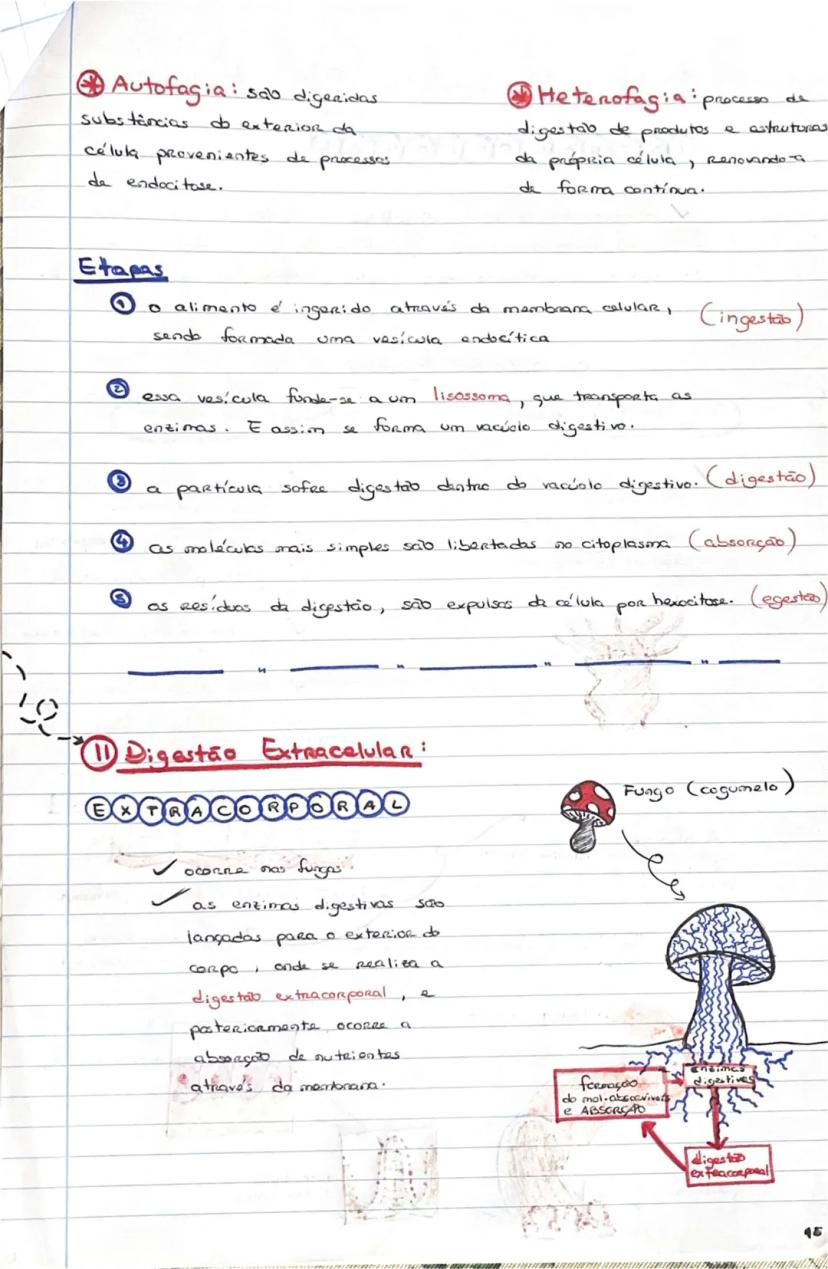 * Autofagia: são digeridas
substâncias do exterior da
célula provenientes de processos
de endocitose.
* Heterofagia: processo de
digestão de produtos e estruturas
da própria célula, renovando-a
de forma contínua.
Etapas
① o alimento é ingerido através da membrana celular, (ingestão)
sendo formada uma vesícula endocítica
② essa vesícula funde-se a um lisossoma, que transporta as
enzimas. E assim se forma um vacúolo digestivo.
③ a partícula sofre digestão dentro do vacúolo digestivo. (digestão)
④ as moléculas mais simples são libertadas no citoplasma (absorção)
⑤ os resíduos da digestão, são expulsos da célula por hexocitose. (egestão)
10
11 Digestão Extracelular:
EXTRACORPORAL
✓ ocorre nos fungos.
✓ as enzimas digestivas são
lançadas para o exterior do
corpo, onde se realiza a
digestão extracorporal, e
posteriormente ocorre a
absorção de nutrientes
através da membrana.
Fungo (cogumelo)
enzimas
digestivas
formação
do mol. absorvíveis
e ABSORÇÃO
digestão
extracorporal
15